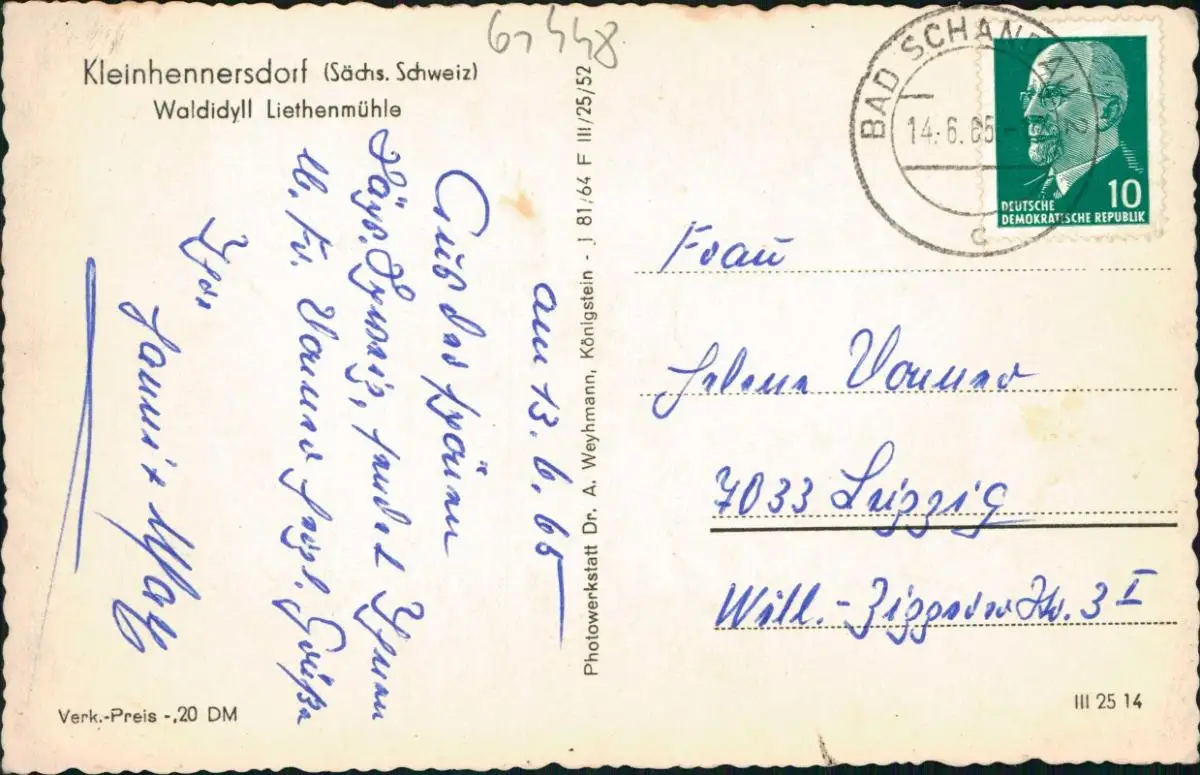 Kleinhennersdorf (Sächs. Schweiz)
Waldidyll Liethenmühle
am 13. 6. 65
Aus der schönen
Sächs. Schweiz, sendet Ihnen
u. Fr. herzl. Grüße
Ihr
Photowerkstatt Dr. A. Weyhmann, Königstein - J 81/64 F III/25/52
BAD SCHANDAU 2
14.6.65
c
10
DEUTSCHE
DEMOKRATISCHE REPUBLIK
Frau
Helene
7033 Leipzig
Will.-Zipperer Str. 3 I
Verk.-Preis -,20 DM
III 25 14